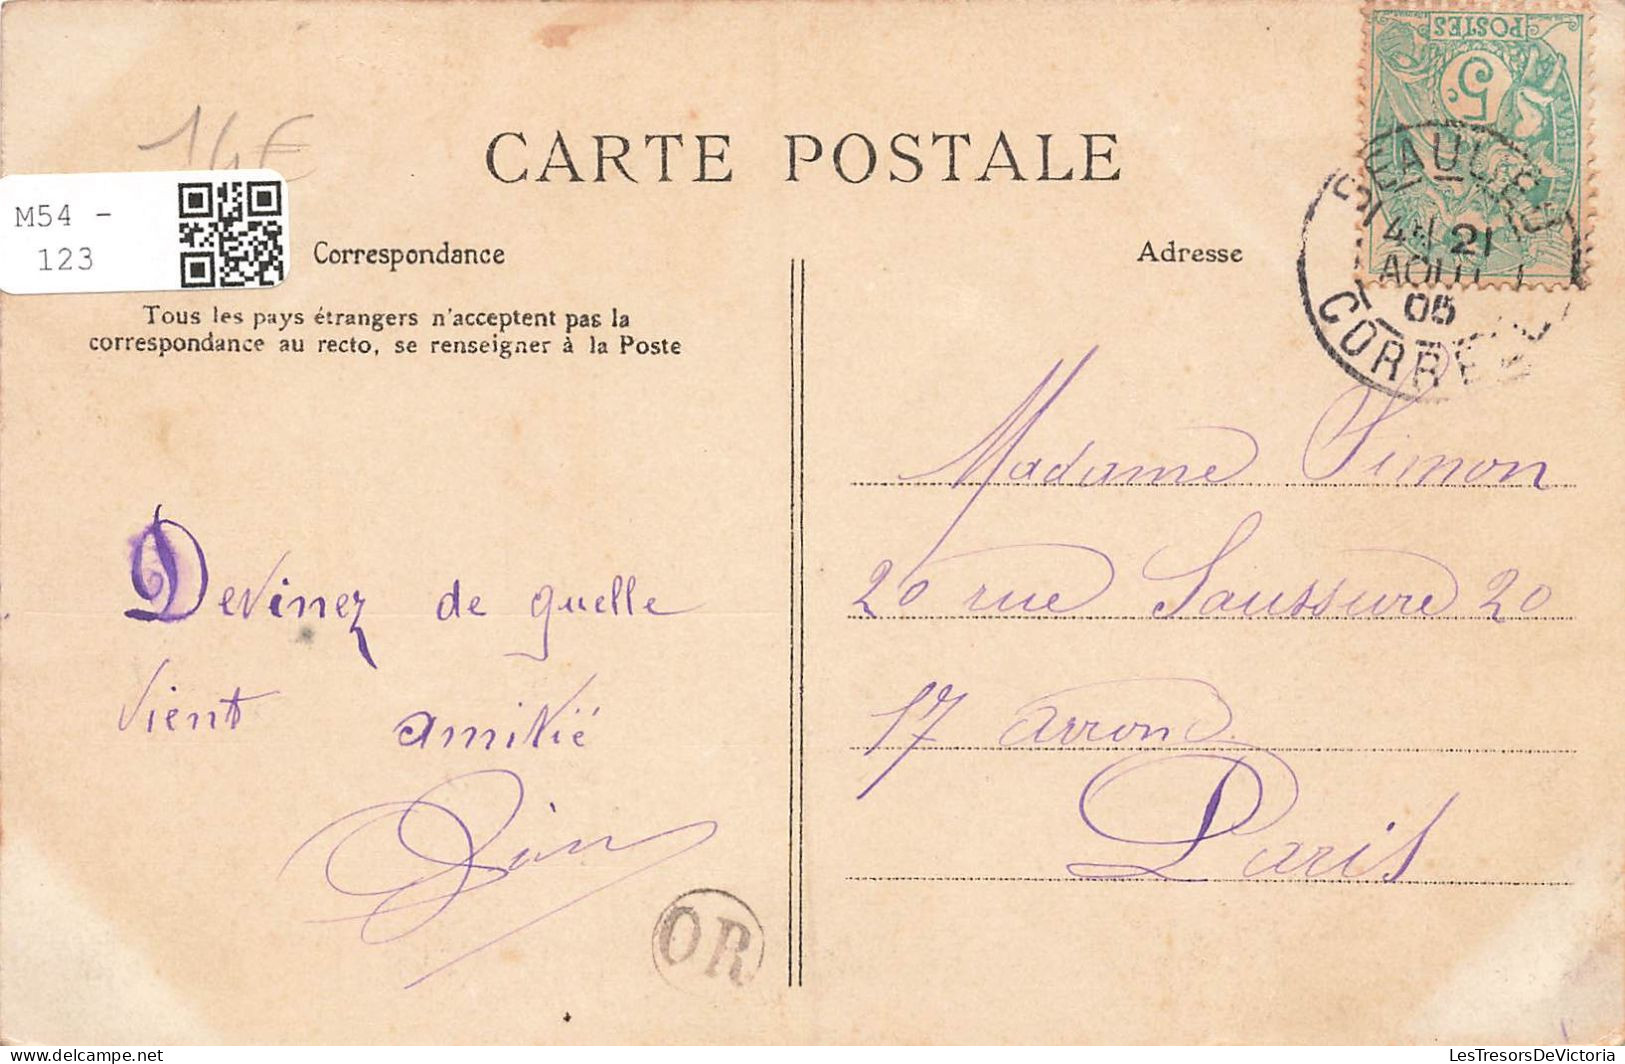 14€
CARTE POSTALE
M54 -
123
POSTES
5
BEAULIEU
21
AOUT
05
CORRÈZE
Correspondance
Adresse
Tous les pays étrangers n'acceptent pas la
correspondance au recto, se renseigner à la Poste
Devinez de quelle
vient amitïé
Madame Simon
20 rue Saussure 20
17 arrond.
Paris
OR
delcampe.net
LesTresorsDeVictoria